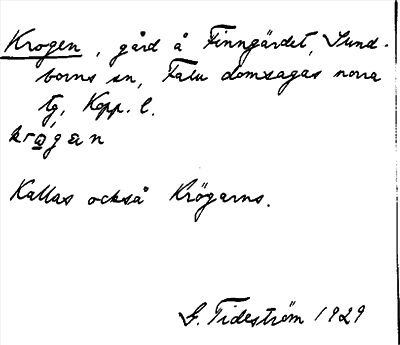 Krogen, gård å Finngärdet, Sund-
borns sn, Falu domsagas norra
tg, Kopp. l.
krọgan
Kallas också Krögarns.
G. Tideström 1929